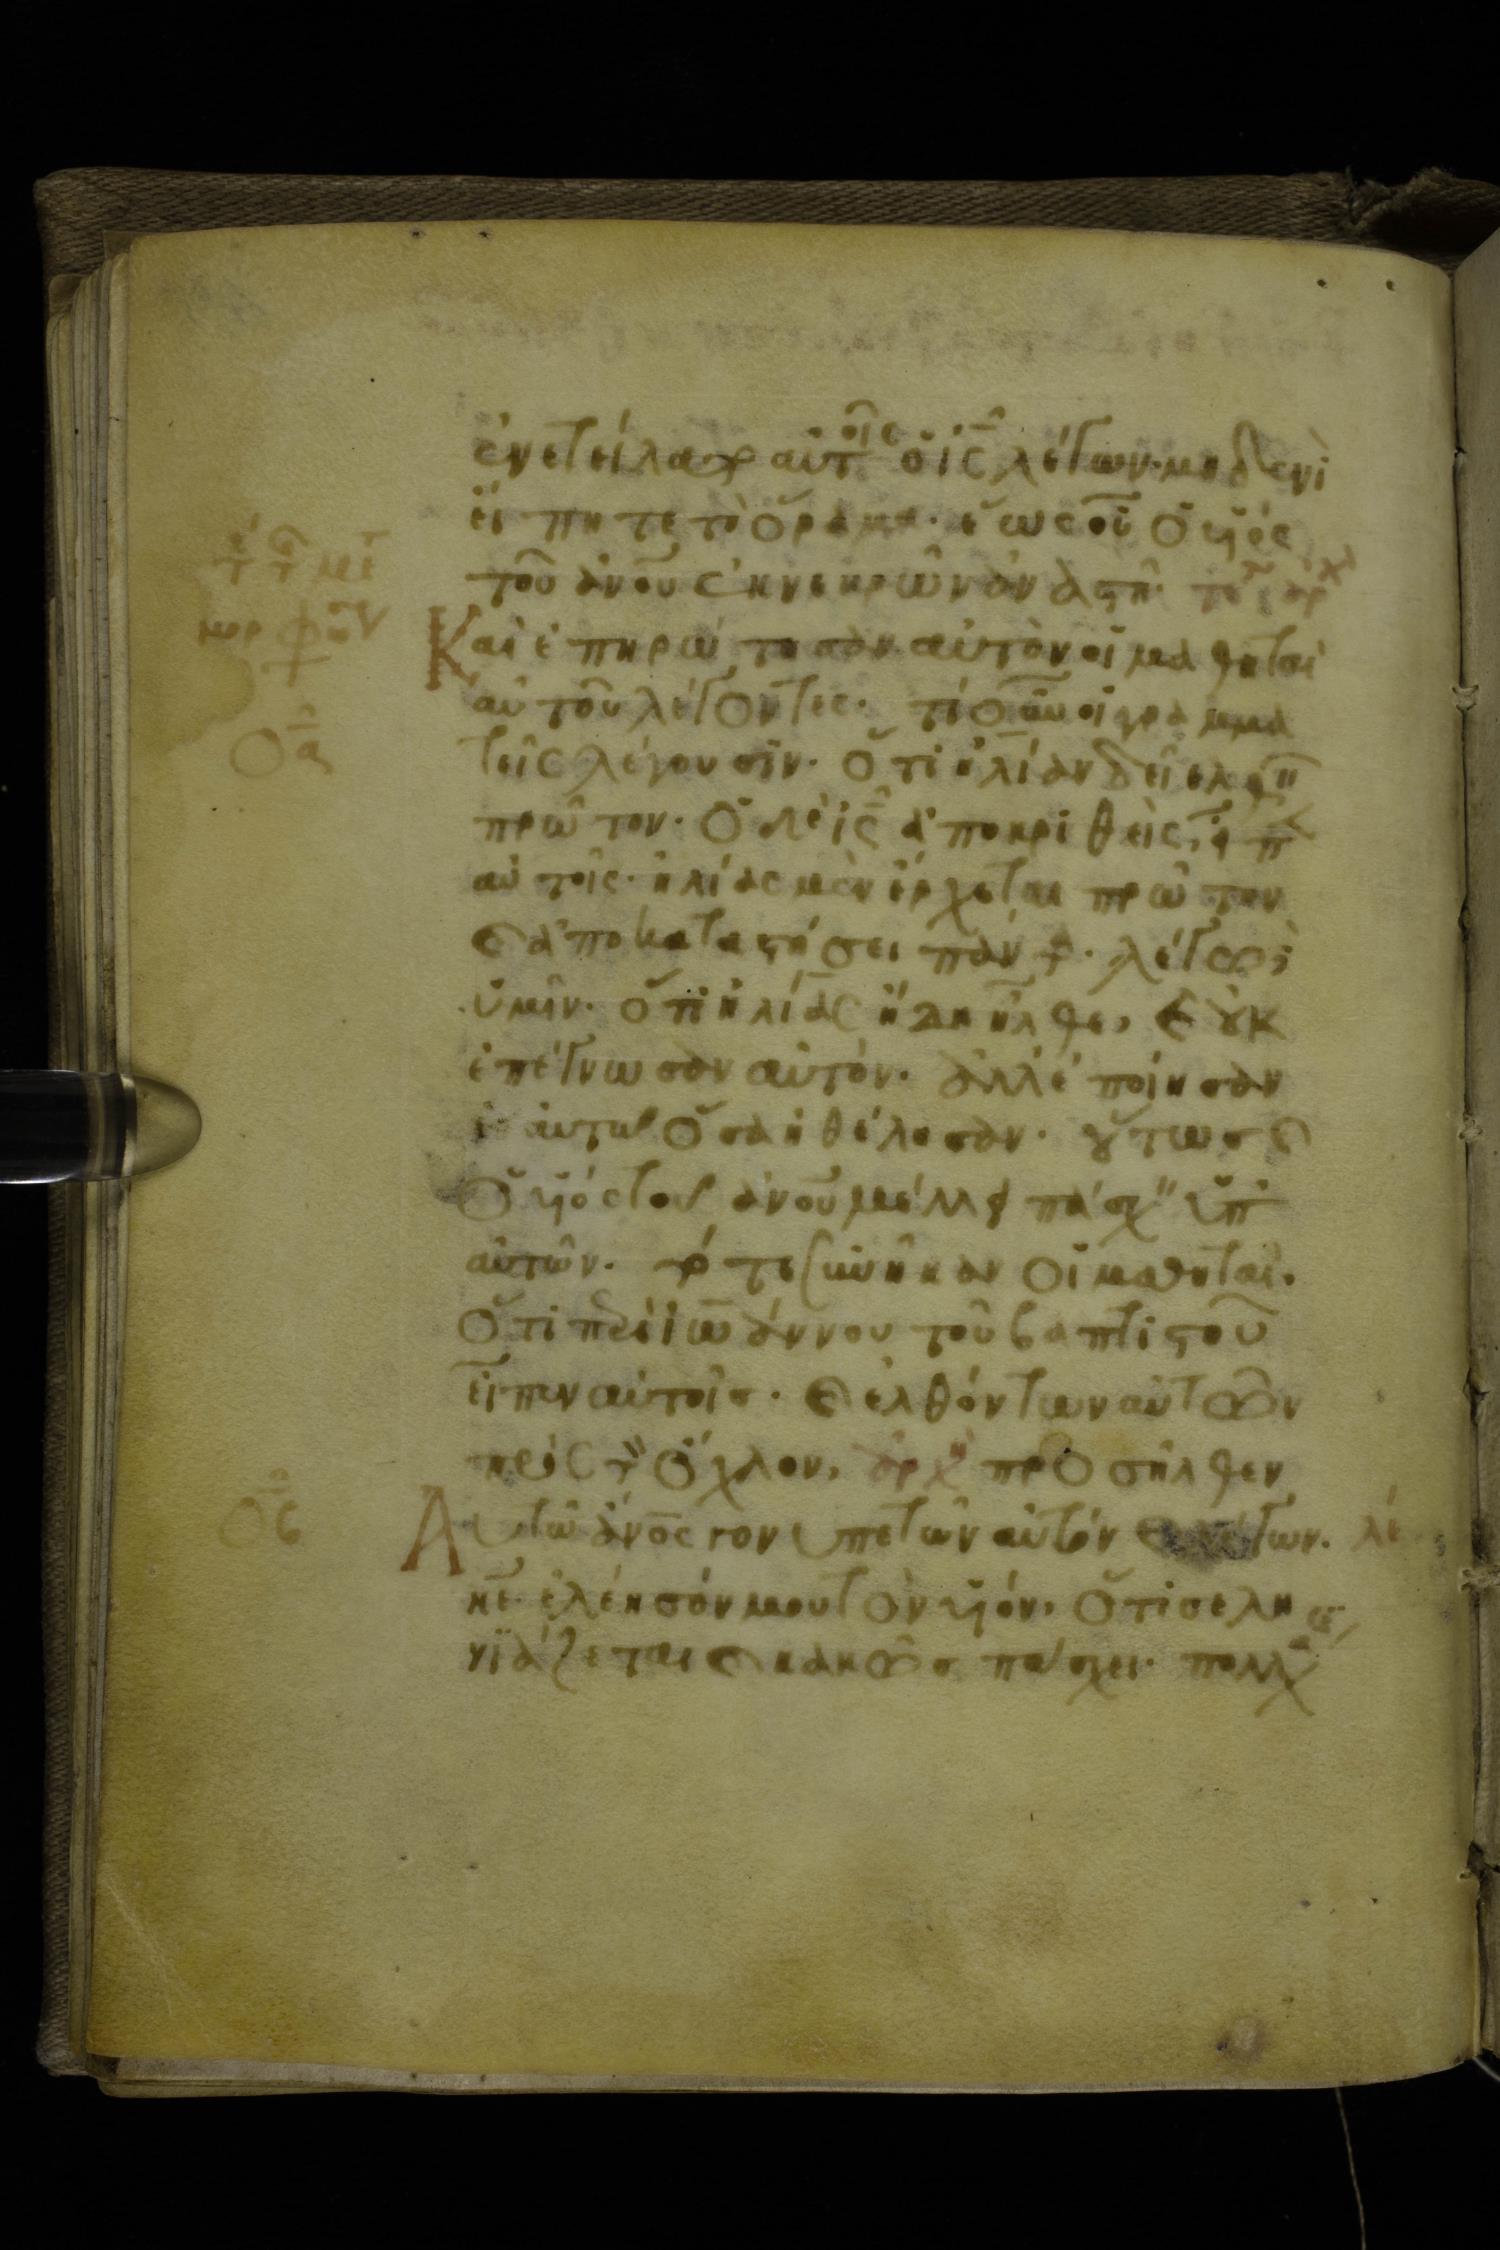 ἐνετείλατο αὐτοῖς ὁ ἰς̄ λέγων· μηδενὶ
εἴπητε τὸ ὅραμα· ἕως οὗ ὁ υἱὸς
τοῦ ἀνου ἐκ νεκρῶν ἀναστῆ· τέ ἀρχ
Καὶ ἐπηρώτησαν αὐτὸν οἱ μαθηταὶ
αὐτοῦ λέγοντες· τί οὖν οἱ γραμμα
τεῖς λέγουσιν· ὅτι ἠλίαν δεῖ ἐλθεῖ
πρῶτον· ὁ δὲ ἰς̄ ἀποκριθεὶς, εἶπ
αὐτοῖς· ἠλίας μὲν ἔρχεται πρῶτον
καὶ ἀποκαταστήσει πάντα· λέγω δὲ
ὑμῖν· ὅτι ἠλίας ἤδη ἦλθε, καὶ οὐκ
ἐπέγνωσαν αὐτόν· ἀλλ' ἐποίησαν
ἐ αὐτῶ ὅσα ἠθέλησαν· οὕτως καὶ
ὁ υἱὸς τοῦ ἀνου μέλλει πάσχειν ὑπ'
αὐτῶν· τότε συνῆκαν οἱ μαθηταὶ.
ὅτι περὶ ἰωάννου τοῦ βαπτιστοῦ
εἶπεν αὐτοῖς· καὶ ἐλθόντων αὐτῶν
πρὸς τὸν ὄχλον, ἀρχ προσῆλθεν
Αὐτῶ ἀνος γονυπετῶν αὐτόν καὶ λέγων.
κε ἐλέησόν μου τὸν υἱόν, ὅτι σελη
νιάζεται καὶ κακῶς πάσχει· πολλάκις
τ τ με
μορφων
οα
ος
λέ